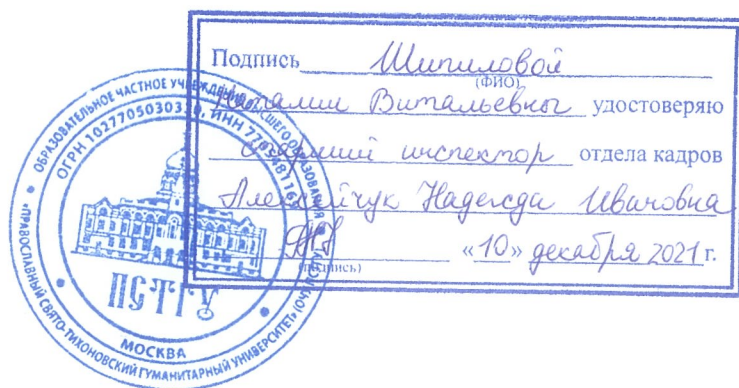 Подпись Шипиловой
(ФИО)
Наталии Витальевны удостоверяю
старший инспектор отдела кадров
Алексейчук Надежда Ивановна
«10» декабря 2021 г.
(подпись)
ОБРАЗОВАТЕЛЬНОЕ ЧАСТНОЕ УЧРЕЖДЕНИЕ ВЫСШЕГО ОБРАЗОВАНИЯ
«ПРАВОСЛАВНЫЙ СВЯТО-ТИХОНОВСКИЙ ГУМАНИТАРНЫЙ УНИВЕРСИТЕТ»
ОГРН ИНН
ПСТГУ
МОСКВА